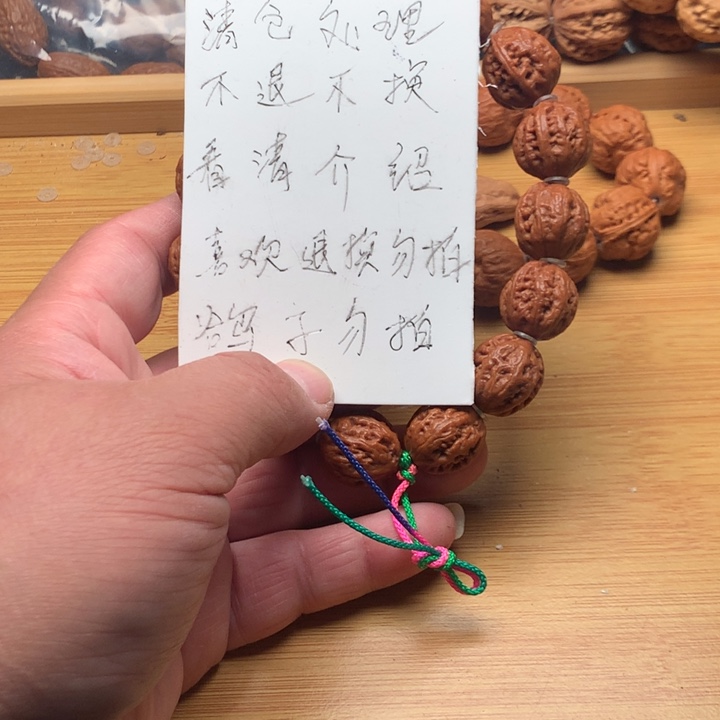 清仓处理
不退不换
看清介绍
喜欢退换勿拍
勿拍